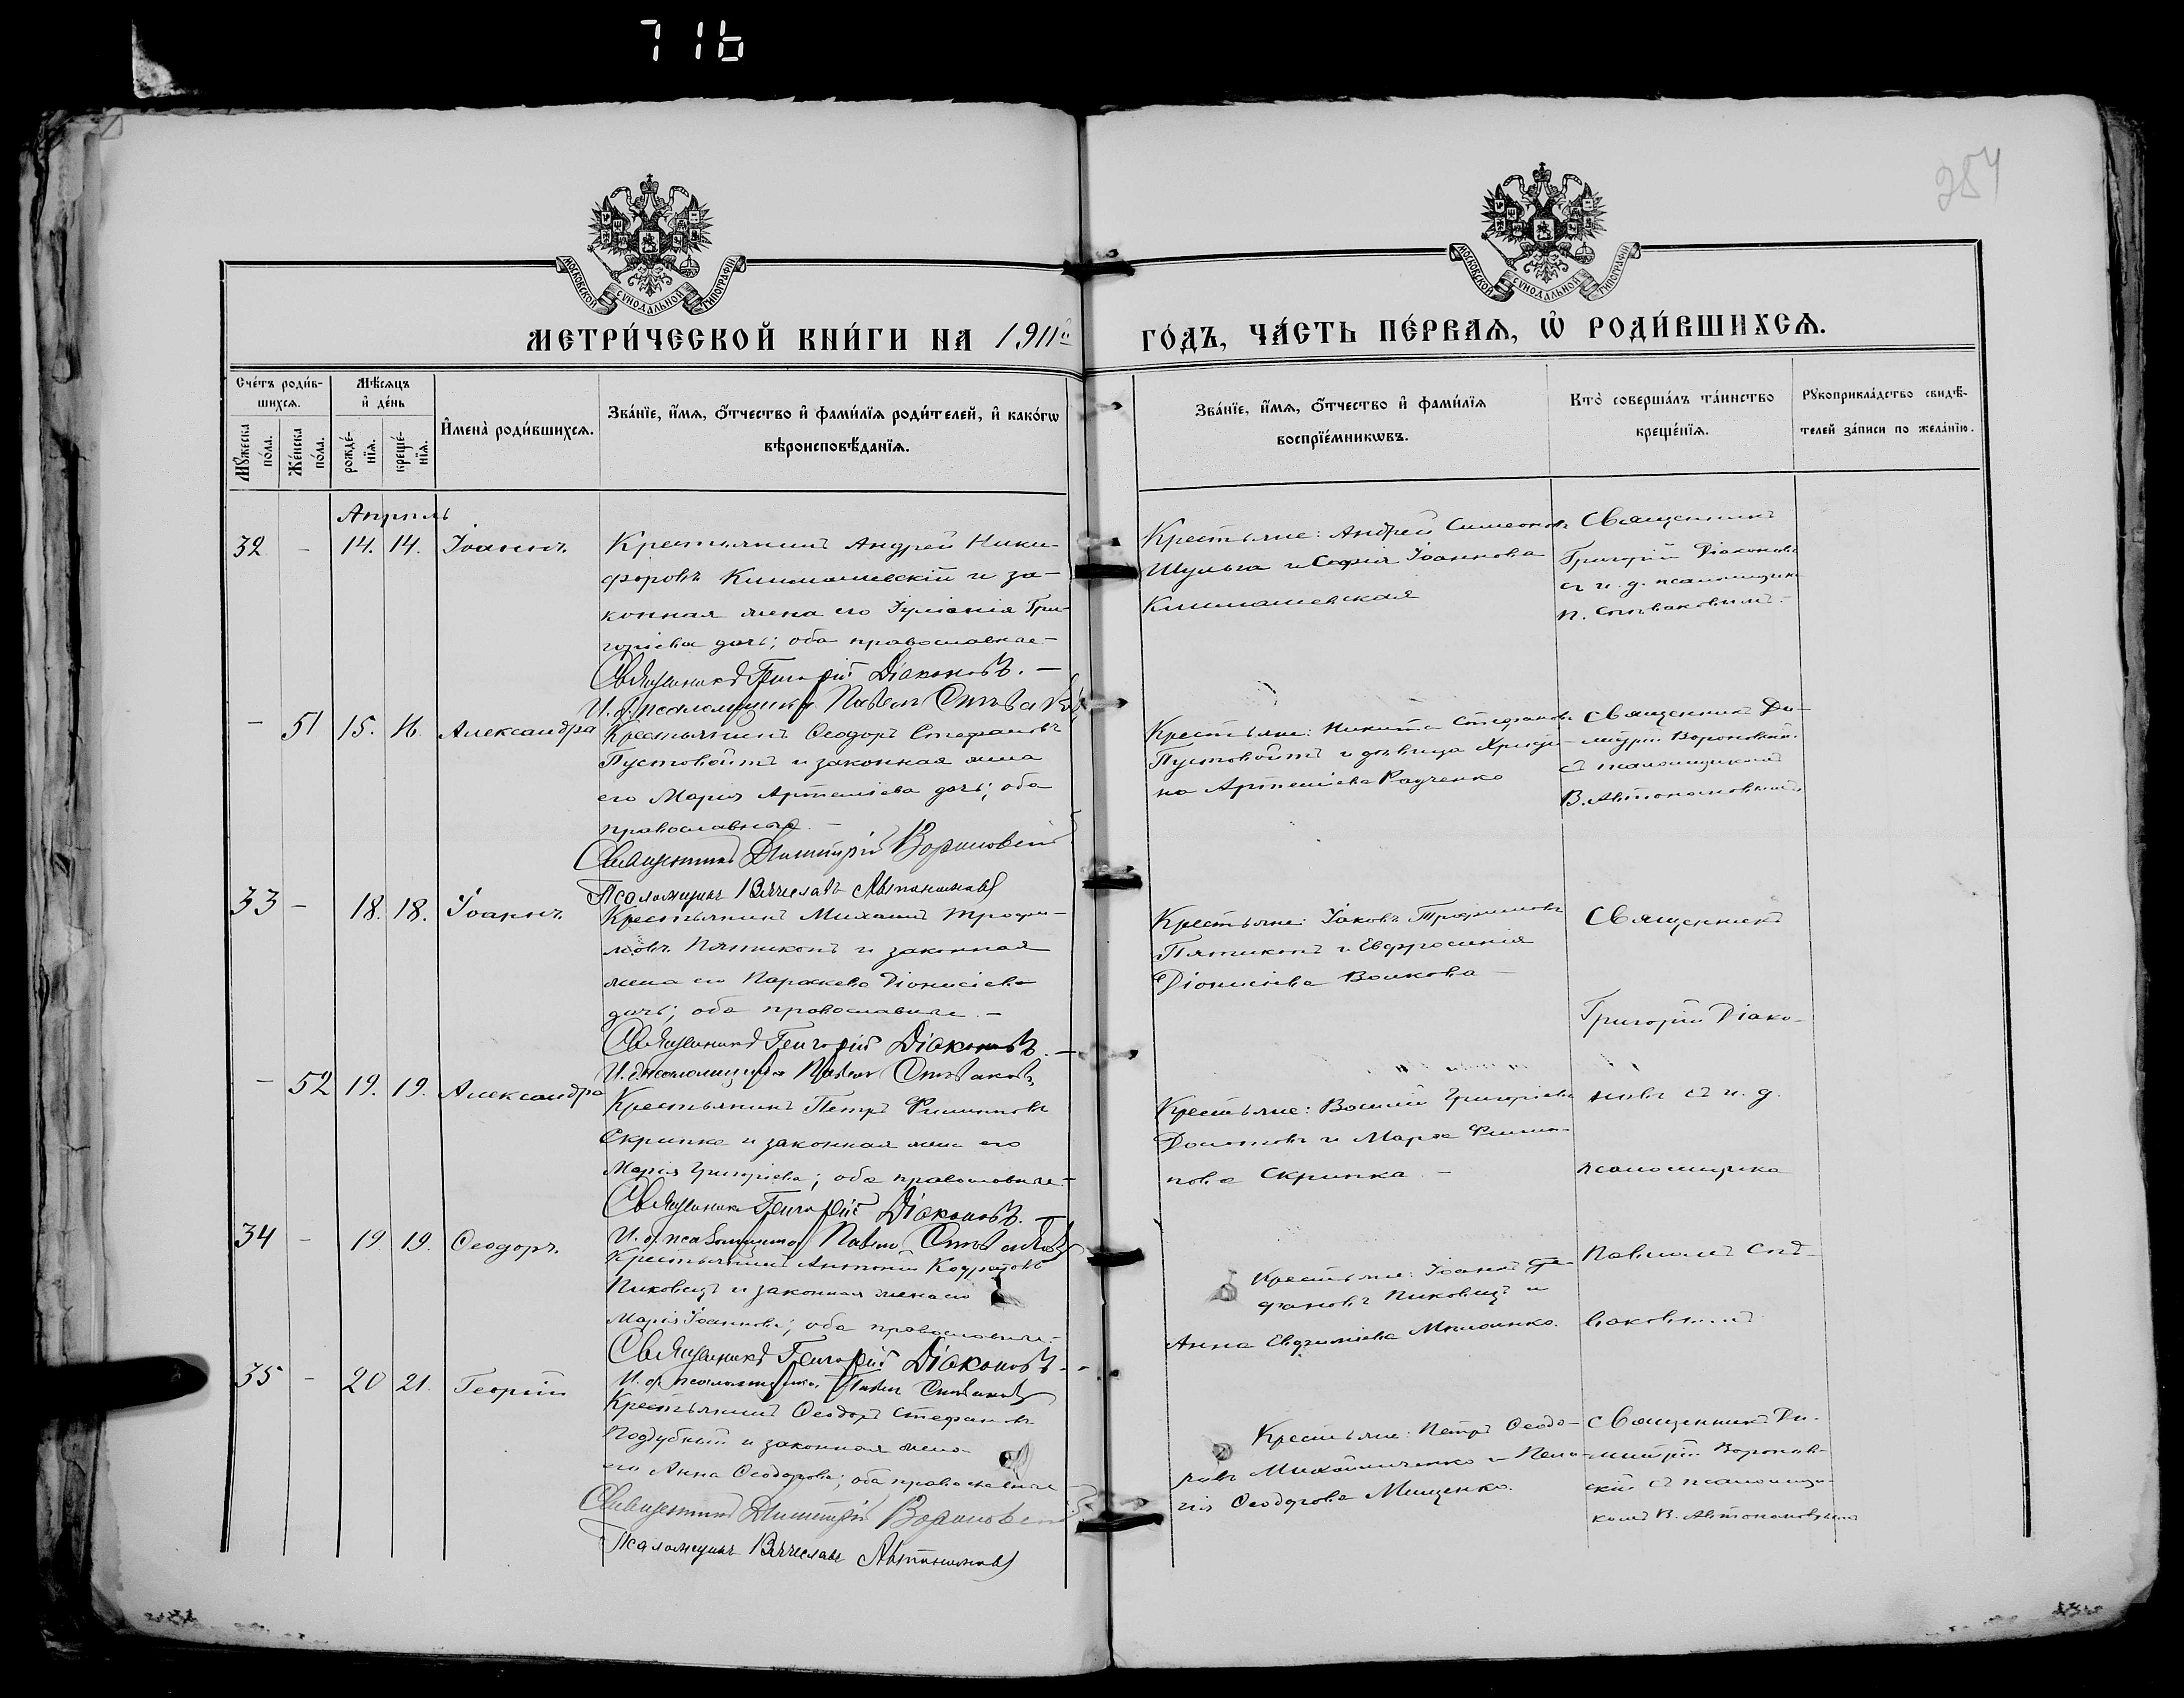 716
284
МОСКОВСКОЙ СУНОДАЛЬНОЙ ТИПОГРАФІИ
МОСКОВСКОЙ СУНОДАЛЬНОЙ ТИПОГРАФІИ
МЕТРИ́ЧЕСКОЙ КНИ́ГИ НА 1911й ГО́ДЪ, ЧА́СТЬ ПЕ́РВАѦ, Ѡ҆ РОДИ́ВШИХСѦ.
Сче́тъ роди́в-
шихсѧ.
Мꙋ́жеска по́ла.
Же́нска по́ла.
Мѣ́сѧцъ
и҆ де́нь
рожде́-
нїѧ.
креще́-
нїѧ.
И҆мена̀ роди́вшихсѧ.
Зва́нїе, и҆́мѧ, ѻ҆́тчество и҆ фами́лїѧ роди́телей, и҆ како́гѡ
вѣроисповѣ́данїѧ.
Зва́нїе, и҆́мѧ, ѻ҆́тчество и҆ фами́лїѧ
воспрїе́мникѡвъ.
Кто̀ соверша́лъ та́инство
креще́нїѧ.
Рꙋкоприкла́дство свидѣ́-
телей за́писи по жела́нїю.
Апрѣль
32 - 14. 14. Іоаннъ
Крестьянинъ Андрей Ники-
форовъ Климашевскій и за-
конная жена его Іуліанія Гри-
горіева дочь; оба православные.-
Священникъ Григорій Діаконовъ. -
И. д. псаломщика Павелъ Спѣваковъ
Крестьяне: Андрей Симеоновъ
Шульга и Софія Іоаннова
Климашевская
Священникъ
Григорій Діаконовъ
съ и. д. псаломщика
П. Спѣваковымъ.-
- 51 15. 16. Александра
Крестьянинъ Ѳеодоръ Стефановъ
Пустовойтъ и законная жена
его Марія Артеміева дочь; оба
православные. -
Священникъ Димитрій Вороновскій
Псаломщикъ Вячеславъ Автономовъ
Крестьяне: Никита Стефановъ
Пустовойтъ и дѣвица Христи-
на Артеміева Радченко
Священникъ Ди-
митрій Вороновскій
съ псаломщикомъ
В. Автономовымъ
33 - 18. 18. Іоаннъ
Крестьянинъ Михаилъ Трофи-
мовъ Пятикопъ и законная
жена его Параскева Діонисіева
дочь; оба православные. -
Священникъ Григорій Діаконовъ. -
И. д. псаломщика Павелъ Спѣваковъ
Крестьяне: Іаковъ Трофимовъ
Пятикопъ и Евфросинія
Діонисіева Волкова -
Священникъ
Григорій Діако-
- 52 19. 19. Александра
Крестьянинъ Петръ Филипповъ
Скрипка и законная жена его
Марія Григоріева; оба православные.-
Священникъ Григорій Діаконовъ. -
И. д. псаломщика Павелъ Спѣваковъ
Крестьяне: Василій Григоріевъ
Долотовъ и Марѳа Филип-
пова Скрипка. -
новъ съ и. д.
псаломщика
34 - 19. 19. Ѳеодоръ
Крестьянинъ Антоній Кодратовъ
Пиковецъ и законная жена его
Марія Іоаннова; оба православные.-
Священникъ Григорій Діаконовъ. -
И. д. псаломщика Павелъ Спѣваковъ
Крестьяне: Іоаннъ Сте-
фановъ Пиковецъ и
Анна Евфиміева Малоенко.
Павломъ Спѣ-
ваковымъ
35 - 20 21. Георгій
Крестьянинъ Ѳеодоръ Стефановъ
Поддубный и законная жена
его Анна Ѳеодорова; оба православные
Священникъ Димитрій Вороновскій
Псаломщикъ Вячеславъ Автономовъ
Крестьяне: Петръ Ѳеодо-
ровъ Михайличенко и Пела-
гія Ѳеодорова Мищенко.
Священникъ Ди-
митрій Воронов-
скій съ псаломщи-
комъ В. Автономовымъ